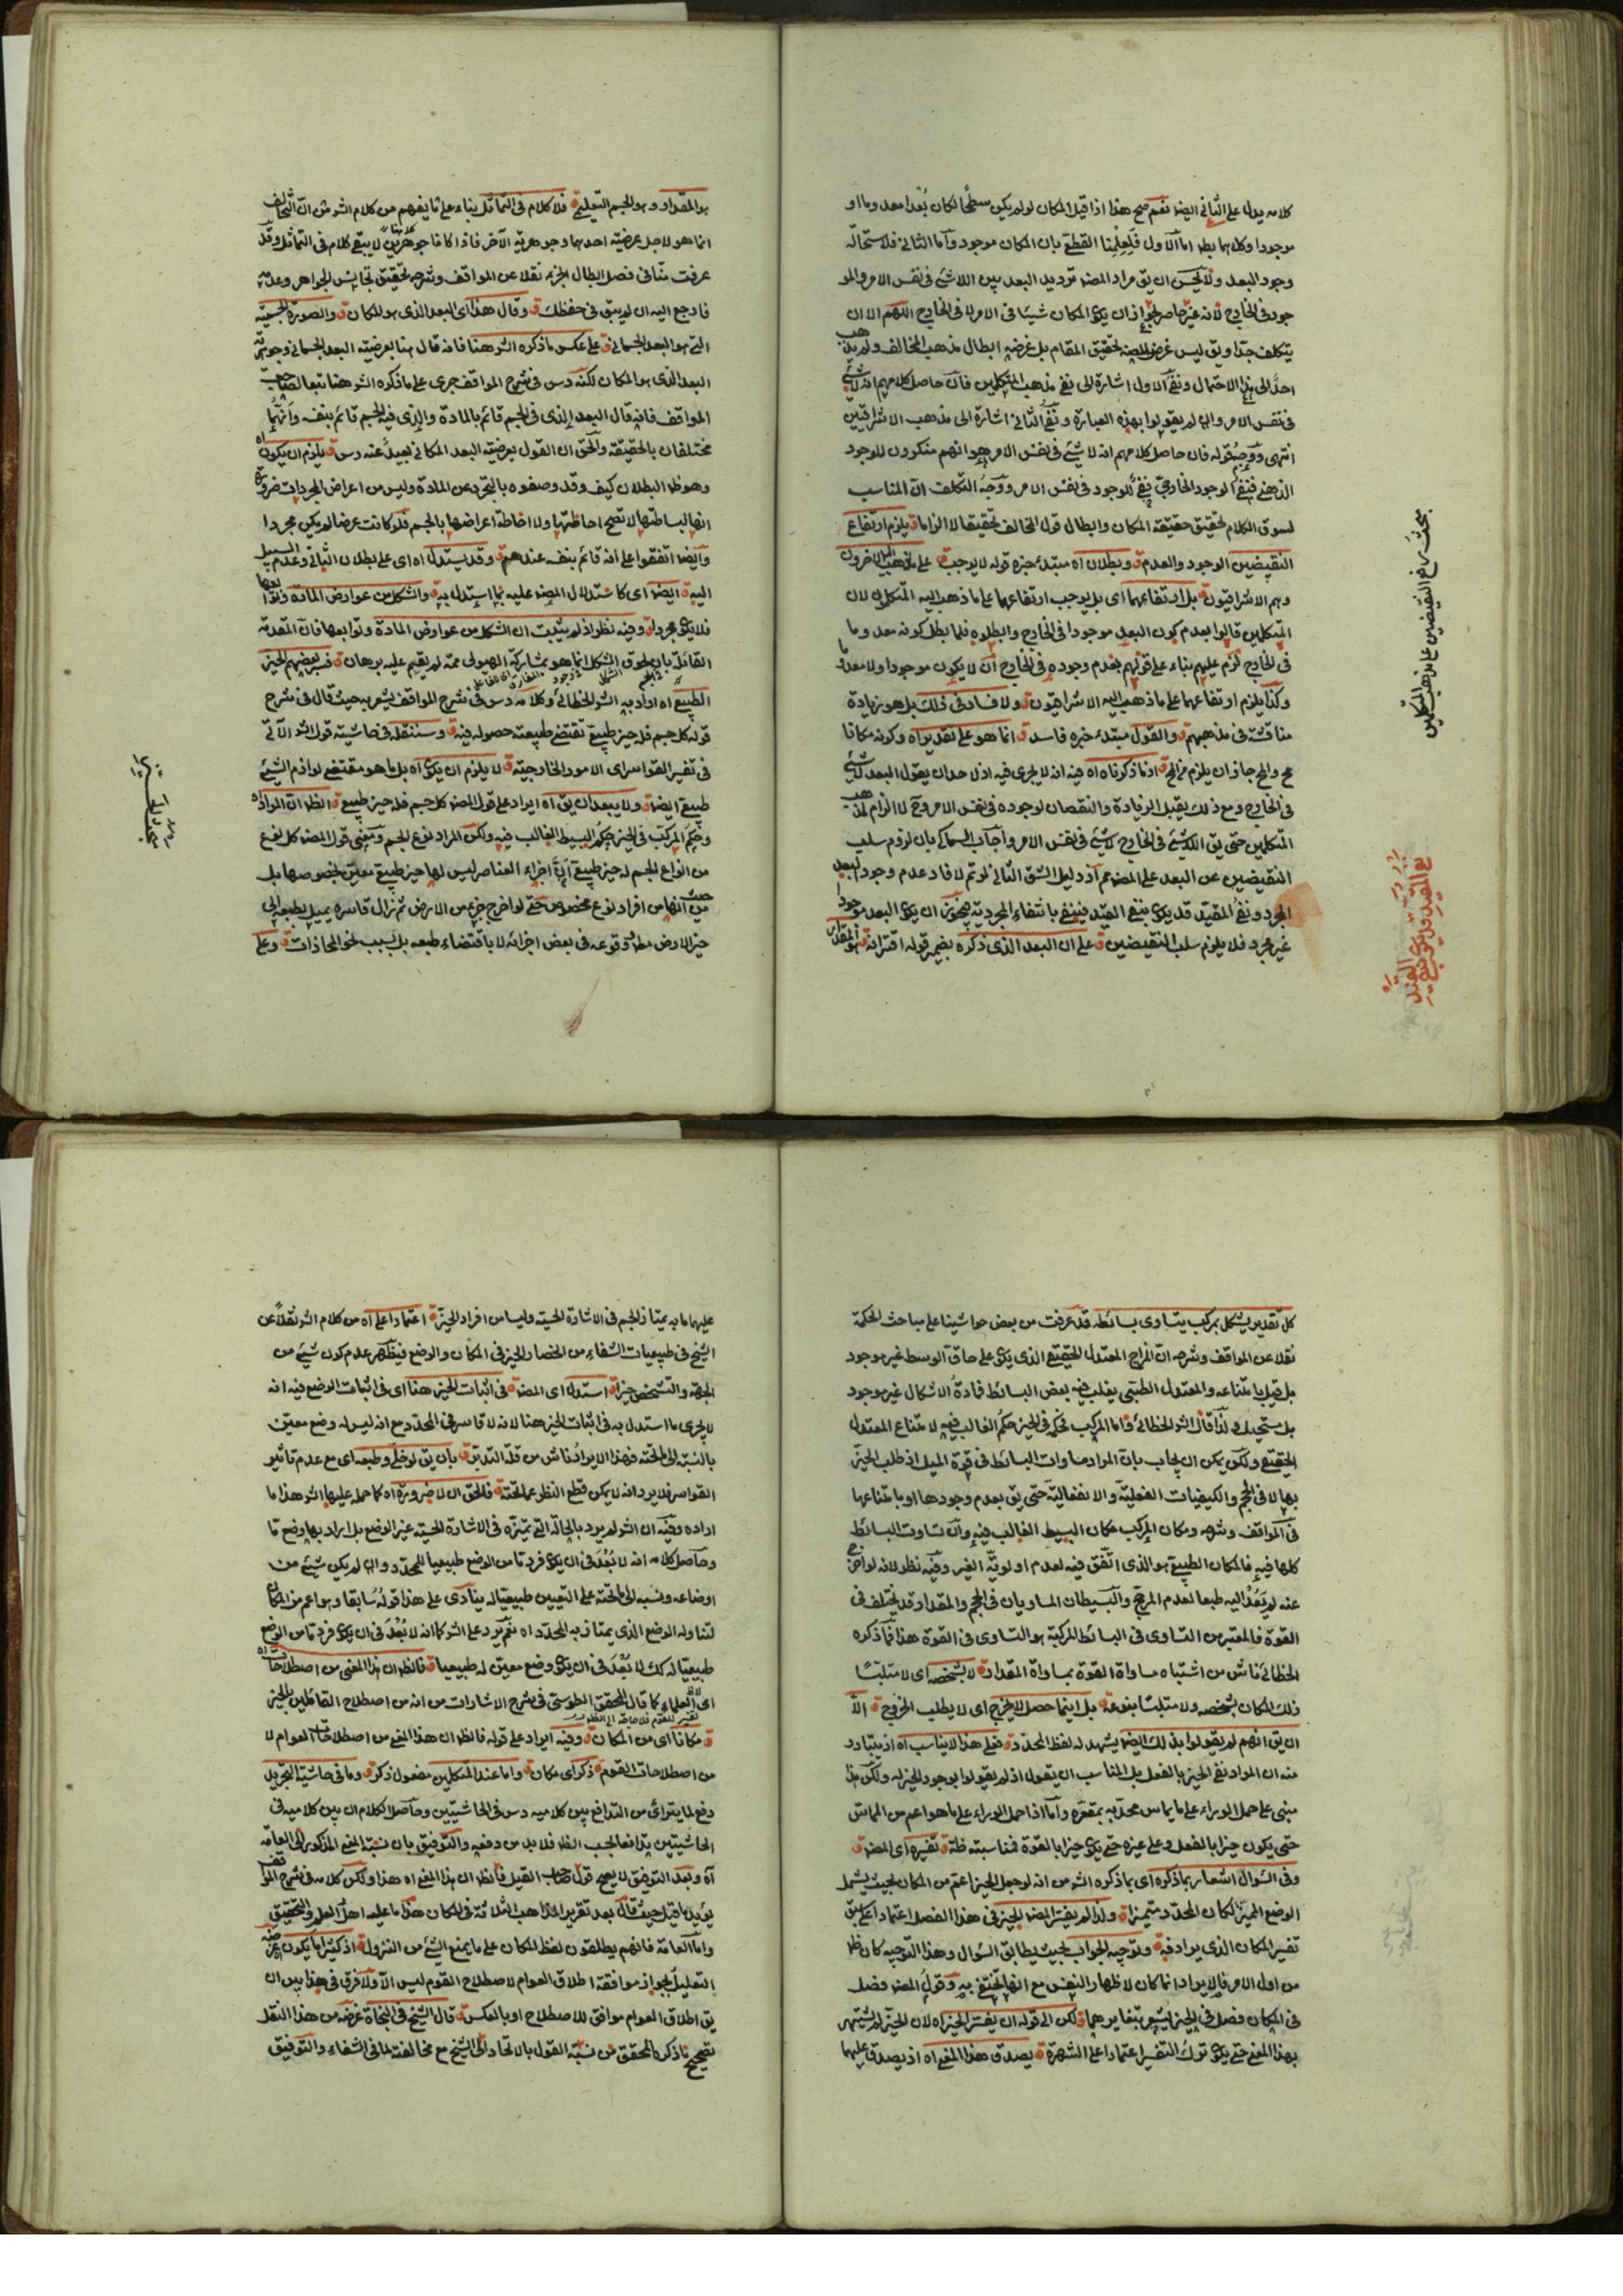 كلامه يدل على الثاني ايضا نعم صح هذا اذا قيل المكان لو لم يكن سطحا لكان بُعدا معدوما او
موجودا وكلاهما بط اما الاول فلعلمنا القطع بان المكان موجود واما الثاني فلاستحالة
وجود البعد ولا يحسن ان يق مراد المص ترديد البعد بين اللاشئ في نفس الامر والمو
جود في الخارج لانه غير حاصر لجواز ان يكون المكان شيئا في الامر لا في الخارج اللهم الا ان
يتكلف جدا ويق ليس غرض المص تحقيق المقام بل غرضه ابطال مذهب المخالف ولم يذهب
احد الى هذا الاحتمال ونفى الاول اشارة الى نفي مذهب المتكلمين فان حاصل كلامهم انه لاشئ
في نفس الامر وان لم يقولوا بهذه العبارة ونفى الثاني اشارة الى مذهب الاشراقيين
انتهى ووجه قوله فان حاصل كلامهم انه لا شئ في نفس الامر هو انهم منكرون للوجود
الذهني فنفى الوجود الخارجي نفى للوجود في نفس الامر ووجه التكلف ان المناسب
لسوق الكلام تحقيق حقيقة المكان وابطال قول المخالف تحقيقا لا الزاما ق يلزم ارتفاع
النقيضين الوجود والعدم ق وبطلان اه مبتدء خبره قوله لا يوجب ق على ما ذهب اليه الاخرون
وهم الاشراقيون ق بل ارتفاعهما اى بل يوجب ارتفاعهما على ما ذهب اليه المتكلمون لان
المتكلمين قالوا بعدم كون البعد موجودا في الخارج وابطلوه فلما بطل كونه معدوما
في الخارج لزم عليهم بناء على قولهم بعدم وجوده في الخارج ان لا يكون موجودا ولا معدوما
وكذا يلزم ارتفاعهما على ما ذهب اليه الاشراقيون ق ولا فساد في ذلك بل هو زيادة
مناقشة في مذهبهم ق والقول مبتدء خبره فاسد ق انما هو على تقديراه وكونه مكانا
مح والمح جاز ان يلزم مح ق اذ ما ذكرناه اه فيه انه لا يجرى فيه اذ لاحد ان يقول البعد لاشئ
في الخارج ومع ذلك يقبل الزيادة والنقصان لوجوده في نفس الامر وح لا الزام لمذهب
المتكلمين حتى يق اللاشئ في الخارج لاشئ في نفس الامر واجاب السماكي بان لزوم سلب
النقيضين عن البعد على المص مم اذ دليل الشق الثاني لو تم لافاد عدم وجود البعد
المجرد ونفى المقيد قد يكون بنفى القيد فينتفى بانتفاء المجردية فيجوز ان يكون البعد موجودا
غير مجرد فلا يلزم سلب النقيضين ق على ان البعد الذى ذكره بضم قوله اقترانه ق هو المقدار
مبحث رفع النقيضين على مذهب المتكلمين
هو المقدار وهو الجسم التعليمي ق فلا كلام في التماثل بناء على ما يفهم من كلام الش من ان التخالف
انما هو لاجل عرضية احدهما وجوهرية الآخر فاذا كانا جوهرين لا يبقى كلام في التماثل وقد
عرفت منا في فصل ابطال الجزء نقلا عن المواقف وشرحه تحقيق تجانس الجواهر وعدمه
فارجع اليه ان لم يبق في حفظك ق وقال هذا اى البعد الذى هو المكان ق والصورة الجسمية
التى هو البعد الجسماني ق على عكس ما ذكره الش هنا فانه قال هنا بعرضية البعد الجسماني وجوهرية
البعد الذى هو المكان لكنه دس في شرح المواقف جرى على ما ذكره الش هنا تبعا لصاحب
المواقف فانه قال البعد الذى في الجسم قائم بالمادة والذى فيه الجسم قائم بنفسه وانهما
مختلفان بالحقيقة والحق ان القول بعرضية البعد المكاني بعيد عنه دس ق يلزم ان يكون اه
وهو ظ البطلان كيف وقد وصفوه بالتجرد عن المادة وليس من اعراض المجردات ضرورة
انها لبساطتها لا تصح احاطتها ولا احاطة اعراضها بالجسم فلو كانت عرضا لم يكن مجردا
وايضا اتفقوا على انه قائم بنفسه عندهم ق وقد يستدل اه اى على بطلان الثاني وعدم السبيل
اليه ق ايضا اى كاستدلال المص عليه بما استدل به ق والشكل من عوارض المادة وتوابعها
فلا يكون مجردا ق وفيه نظر اذ لم يثبت ان الشكل من عوارض المادة وتوابعها فان المقدمة
القائلة بان لحوق الشكل انما هو بمشاركة الهيولى مم لم يقم عليه برهان ق فسر بعضهم الحيز
الطبيعي اه اراد به الش الخطائي وكلامه دس في شرح المواقف يشعر به حيث قال في شرح
قوله كل جسم فله حيز طبيعي تقتضي طبيعته حصوله فيه ق وسننقله في حاشية قول الش الآتي
في تفسير القواسر اى الامور الخارجية ق لا يلزم ان يكون اه بل ما هو مقتضى لوازم الشئ
طبيعي ايضا ق ولا يبعد ان يق اه ايراد على قول المص كل جسم فله حيز طبيعي ق الظ ان المراد اه
وحكم المركب في الحيز حكم البسيط الغالب فيه ولكن المراد نوع الجسم ومعنى قول المص كل نوع
من انواع الجسم له حيز طبيعي اذ اجزاء العناصر ليس لها حيز طبيعي معين بخصوصها بل
من حيث انها من افراد نوع مخصوص حتى لو اخرج جزء من الارض ثم زال قاسره يميل بطبعه الى
حيز الارض مطلقا وقوعه في بعض اجزائه لا باقتضاء طبعه بل بسبب نحو المحاذات ق وعلى
كل تقدير يشكل بمركب يتساوى بسائطه قد عرفت من بعض حواشينا على مباحث الحكمة
نقلا عن المواقف وشرحه ان المزاج المعتدل الحقيقي الذى يكون على حاق الوسط غير موجود
بل قيل بامتناعه والمعتدل الطبي يغلب فيه بعض البسائط فمادة الاشكال غير موجود
بل مستحيل ولذا قال الش الخطائي واما المركب فحكمه في الحيز حكم الغالب فيه لامتناع المعتدل
الحقيقي ولكن يمكن ان يجاب بان المراد مساوات البسائط في قوة الميل اذ طلب الحيز
بها لا في الحجم والكيفيات الفعلية والانفعالية حتى يق بعدم وجودها او بامتناعها
في المواقف وشرحه ومكان المركب مكان البسيط الغالب فيه وان تساوت البسائط
كلها فيه فالمكان الطبيعي هو الذى اتفق فيه لعدم اولوية الغير وفيه نظر لانه لو اخرج
عنه لم يعد اليه طبعا لعدم المرجح والبسيطان المساويان في الحجم والمقدار قد يختلف في
القوة فالمعتبر من التساوى في البسائط المركبة هو التساوى في القوة هذا فما ذكره
الخطائي ناش من اشتباه مساواة القوة بمساواة المقدار ق لا بشخصه اى لا متلبسا
ذلك المكان بشخصه ولا متلبسا بنوعه ق بل اينما حصل لا يخرج اى لا يطلب الخروج ق الا
ان يق انهم لم يقولوا بذلك ايضا يشهد له لفظ المحدد ق فعلى هذا لا يناسب اه اذ يتبادر
منه ان المراد نفى الحيز بالفعل بل المناسب ان يقول اذ لم يقولوا بوجود الحيز له ولكن هذا
مبنى على حمل الوراء على ما يماس محدبه بمقعره واما اذا حمل الوراء على ما هو اعم من المماس
حتى يكون حيزا بالفعل وعلى غيره حتى يكون حيزا بالقوة فمناسبته ظ ق تفسيره اى المص ق
وفي السؤال اشعار بما ذكره اى بما ذكره الش من انه لو جعل الحيز اعم من المكان بحيث يشمل
الوضع المميز لكان المحدد متميزا ق ولذا لم يفسر المص الحيز في هذا الفصل اعتمادا على سبق
تفسير المكان الذى يرادفه ق وتوجيه الجواب بحيث يطابق السؤال وهذا التوجيه كان ظ
من اول الامر فالايراد انما كان لاظهار النفس مع انها تختفي به وقول المص فصل
في المكان فصل في الحيز يشعر بتغايرهما ق لكن الى قوله ان يفسر الحيز اه لان الحيز لم يشتهر
بهذا المعنى حتى يكون ترك التفسير اعتمادا على الشهرة ق يصدق هذا المعنى اه اذ يصدق عليهما
عليهما ما به يمتاز الجسم في الاشارة الحسية وليسا من افراد الحيز ق اعتمادا على اه من كلام الش نقلا عن
الشيخ في طبيعيات الشفاء من انحصار الحيز في المكان والوضع فيظهر عدم كون شئ من
الجهة والتشخص حيزا ق استدل اى المص ق في اثبات الحيز هنا اى في اثبات الوضع فيه انه
لا يجرى ما استدل به في اثبات الحيز هنا لانه لا قاسر في المحدد مع انه ليس له وضع معين
بالنسبة الى ما تحته فهذا الايراد ناش من قلة التدبر ق بان يق لو خلى وطبعه اى مع عدم تأثير
القواسر فلا يرد انه لا يمكن قطع النظر عما تحته ق فالحق ان لا ضرورة اه كما حمله عليها الش هذا ما
اراده وفيه ان الش لم يرد بالحالة التى تميزه في الاشارة الحسية غير الوضع بل اراد بها وضع ما
وحاصل كلامه انه لا بُعد في ان يكون فرد ما من الوضع طبيعيا للمحدد وان لم يكن شئ من
اوضاعه ونسبه الى ما تحته على التعيين طبيعيا له ينادى على هذا قوله سابقا وهو اعم من المكان
لتناوله الوضع الذى يمتاز به المحدد اه نعم يرد على الش كما انه لا بُعد في ان يكون فرد ما من الوضع
طبيعيا له كك لا بُعد في ان يكون وضع معين له طبيعيا ق فالظ ان هذا المعنى من اصطلاحات اه
اى العلماء كما قال المحقق الطوسي في شرح الاشارات من انه من اصطلاح القائلين بالجزء
ق مكانا اى من المكان ق وفيه ايراد على قوله فالظ ان هذا المعنى من اصطلاحات العوام لا
من اصطلاحات القوم ق ذكر اى مكان ق واما عند المتكلمين مفعول ذكر ق وما في حاشية التجريد
دفع لما يترائ من التدافع بين كلاميه دس في الحاشيتين وحاصل الكلام ان بين كلاميه في
الحاشيتين تدافعا بحسب الظ فلا بد من دفعه والتوفيق بان نسبة المعنى المذكور الى العامة
اه وبعد التوفيق لا يصح قول صاحب القيل فالظ ان هذا المعنى اه هذا ولكن كلامه في شرح المواقف
يؤيد ما قيل حيث قال بعد تقرير المذاهب الثلاثة في المكان هذا ما عليه اهل العلم والتحقيق
واما العامة فانهم يطلقون لفظ المكان على ما يمنع الشئ من النزول ق اذ كثيرا ما يكون غرضه
التعليل بجواز موافقة اطلاق العوام لاصطلاح القوم ليس الا ولا فرق في هذا بين ان
يق اطلاق العوام موافق للاصطلاح او بالعكس ق قال الشيخ في النجاة غرضه من هذا النقل
تصحيح ما ذكره المحقق من نسبة القول بالاتحاد الى الشيخ مع مخالفته لما في الشفاء والتوفيق